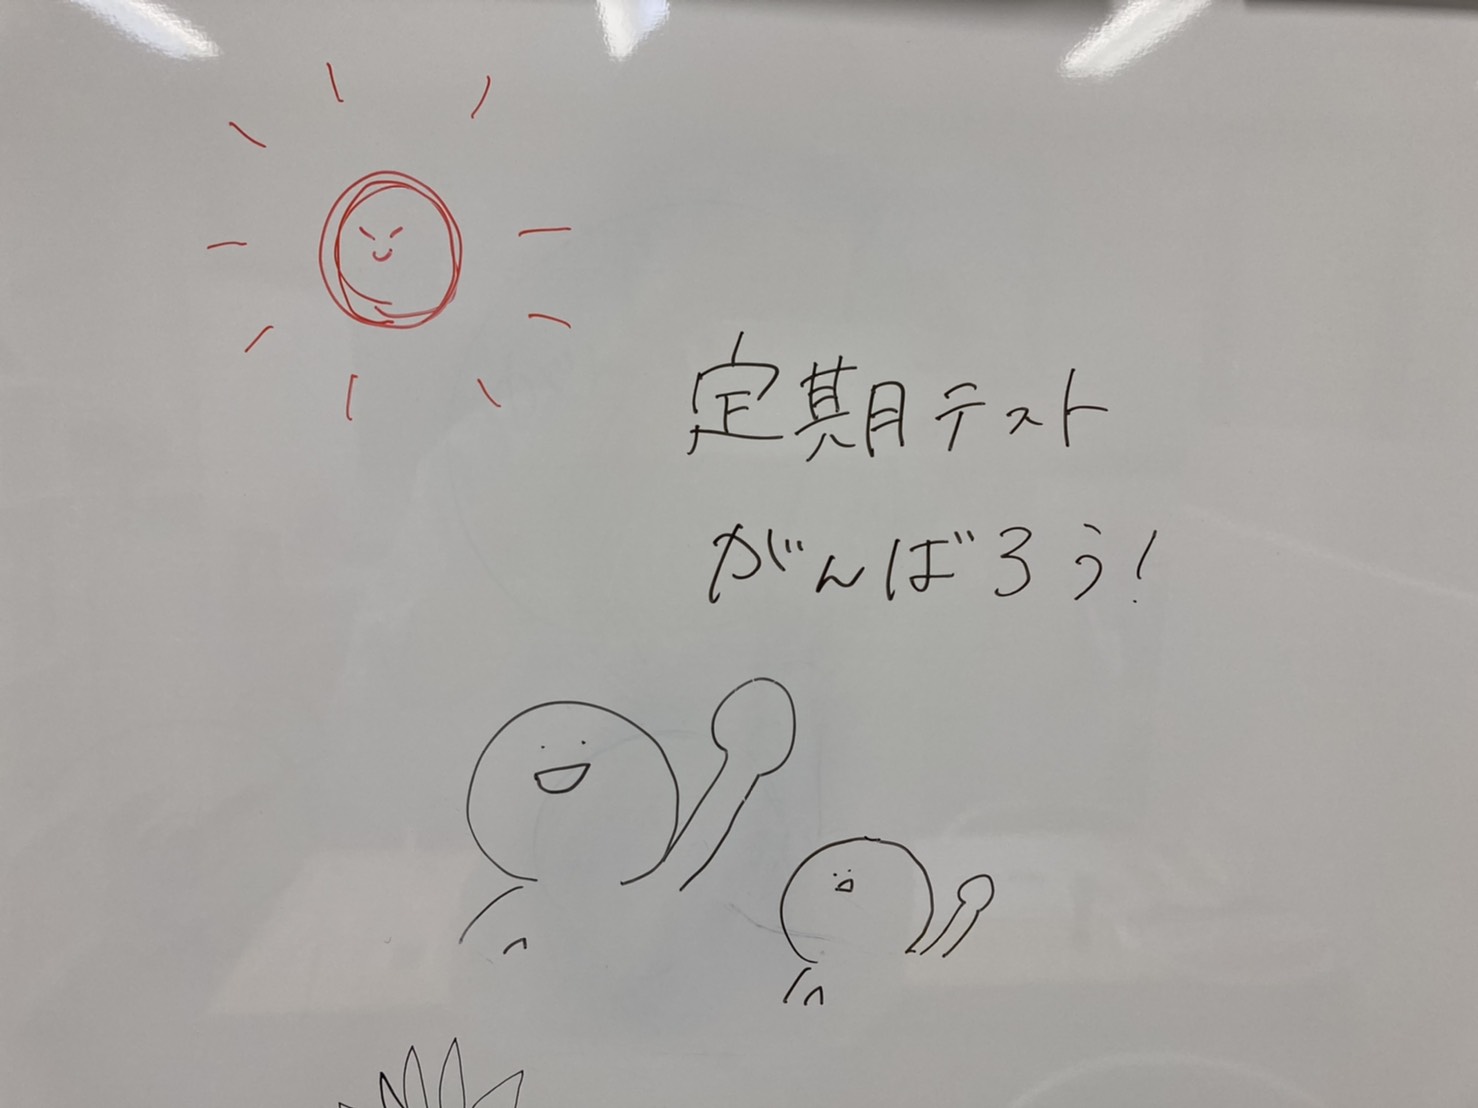 定期テスト
がんばろう!